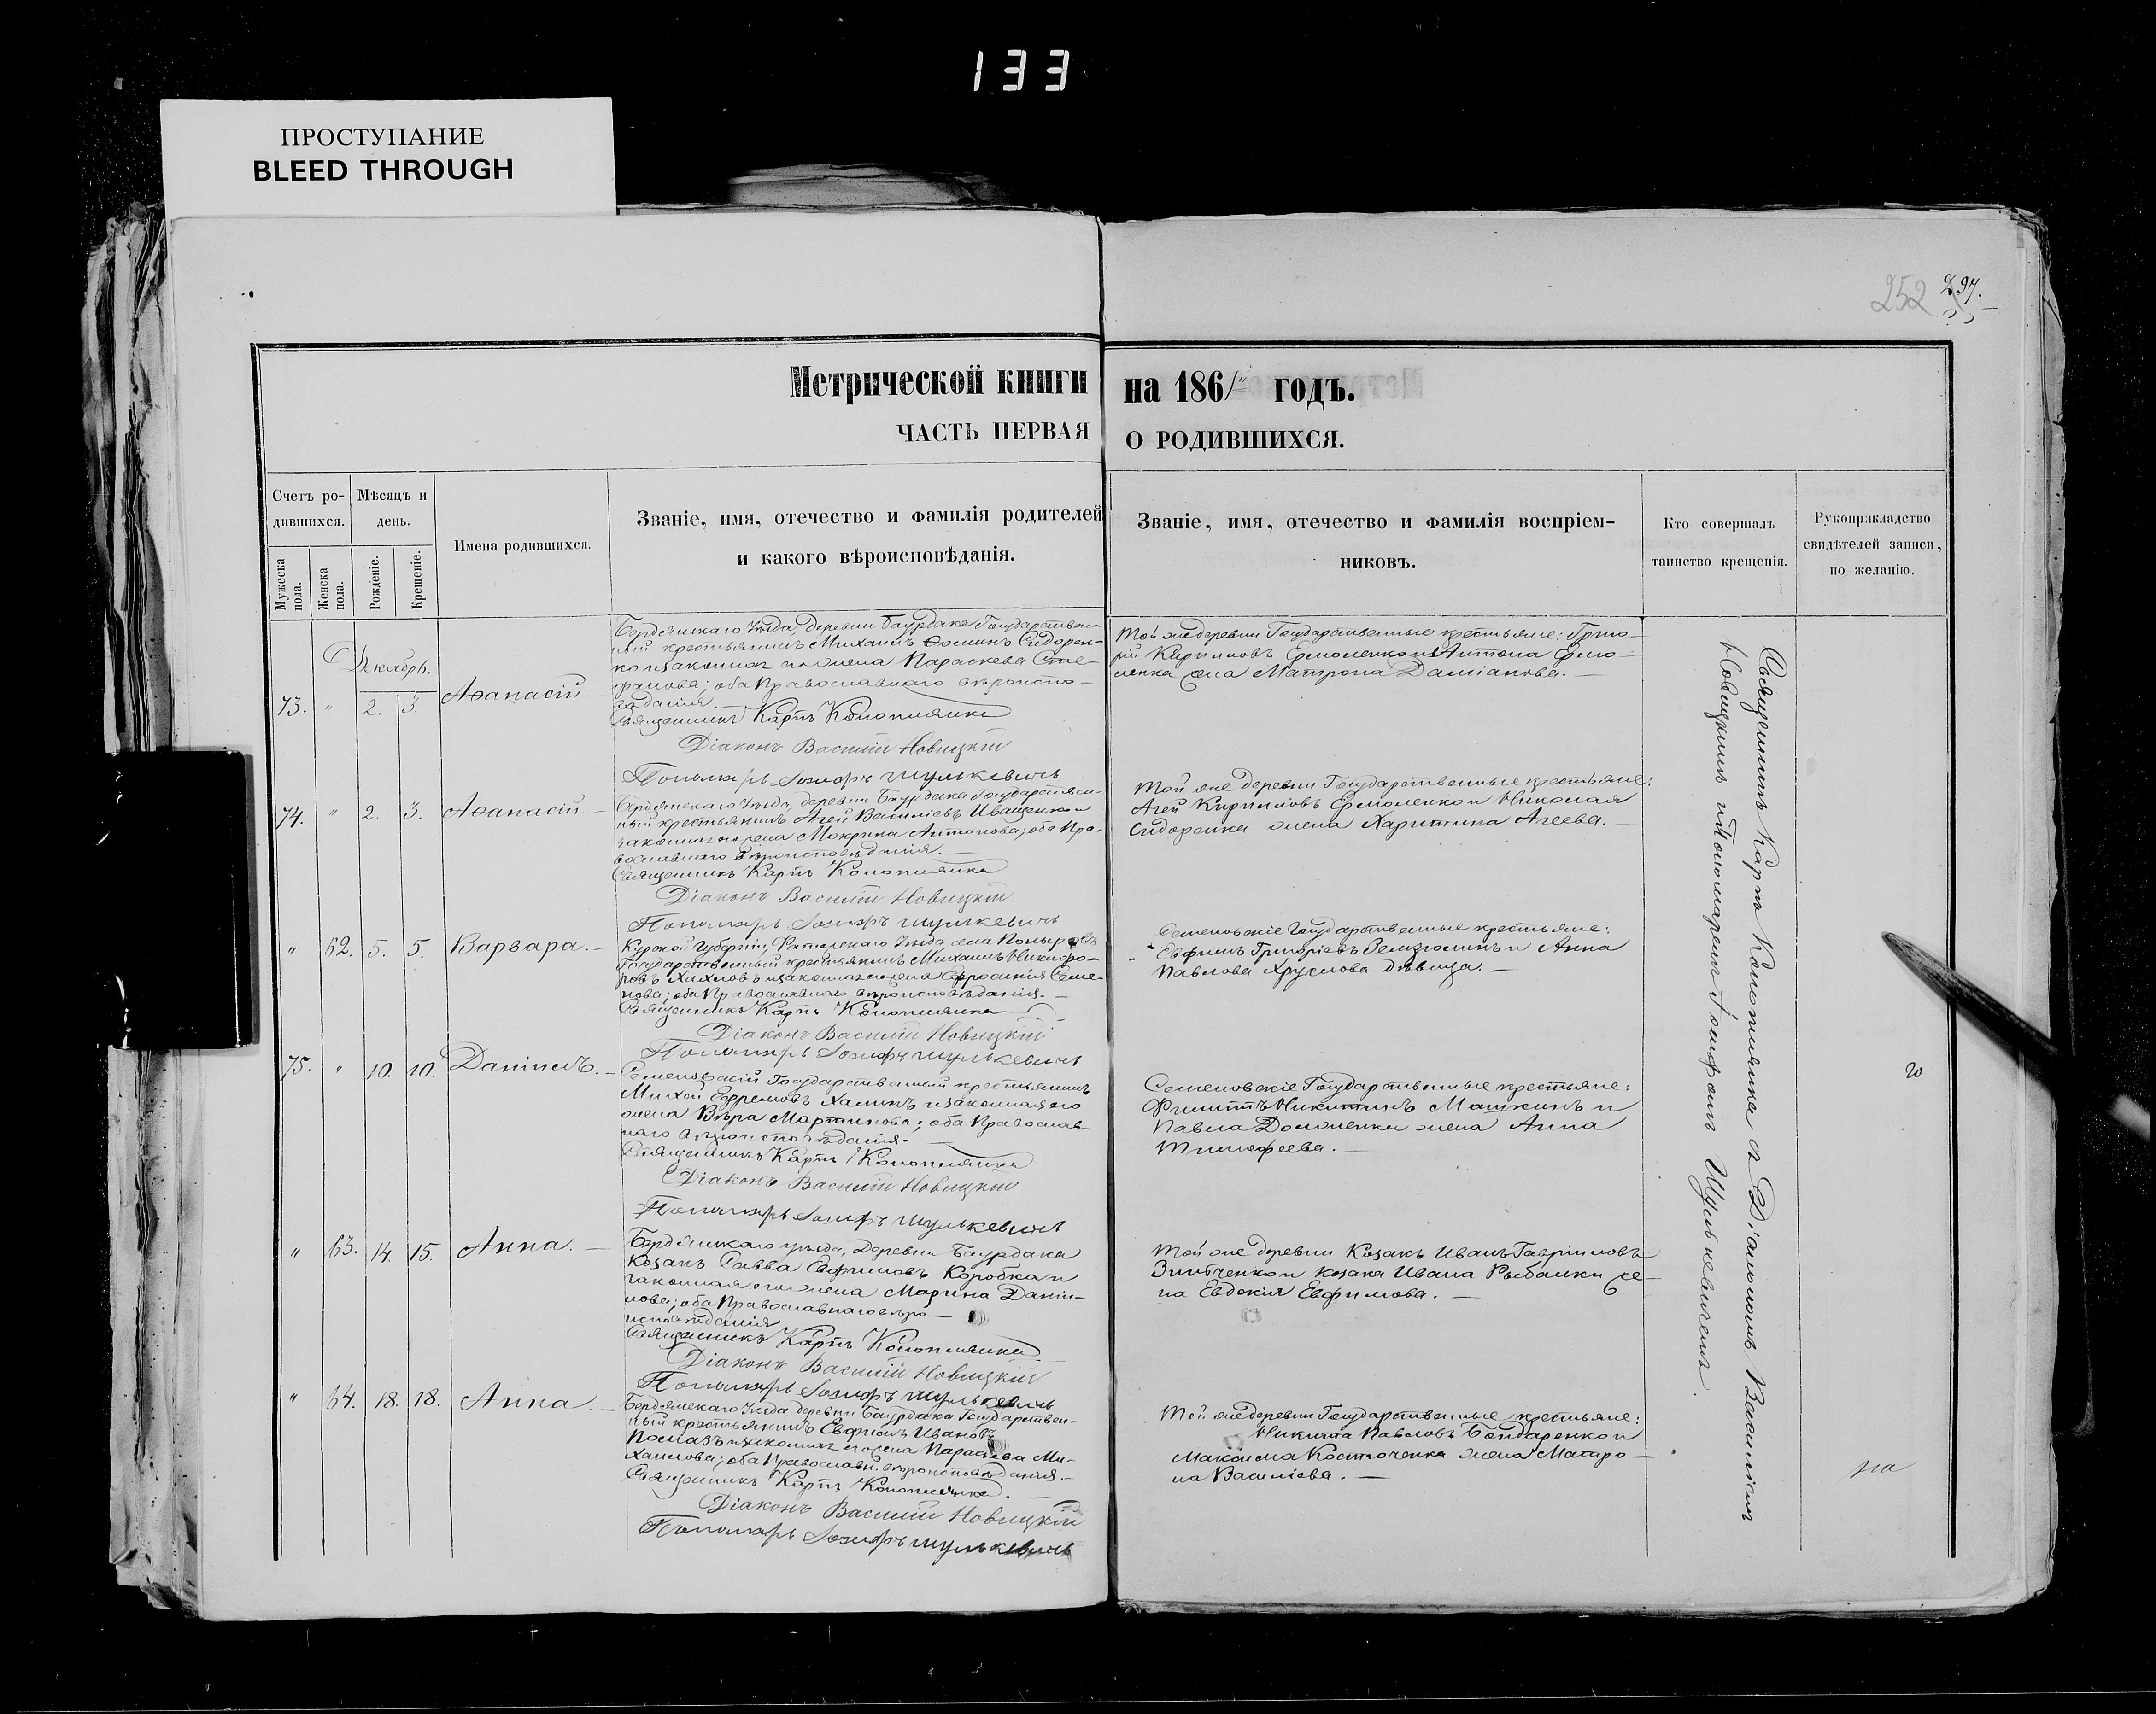 133
ПРОСТУПАНИЕ
BLEED THROUGH
252 297.
Метрической книги на 1861 годъ.
ЧАСТЬ ПЕРВАЯ О РОДИВШИХСЯ.
Счетъ ро-
дившихся.
Мѣсяцъ и
день.
Мужеска пола.
Женска пола.
Рожденіе.
Крещеніе.
Имена родившихся.
Званіе, имя, отечество и фамилія родителей
и какого вѣроисповѣданія.
Званіе, имя, отечество и фамилія воспріем-
никовъ.
Кто совершалъ
таинство крещенія.
Рукоприкладство
свидѣтелей записи,
по желанію.
Декабрь.
73. " 2. 3. Аѳанасій.
Бердянскаго Уѣзда, Деревни Баурдака Государствен-
ный крестьянинъ Михаилъ Ѳоминъ Сидорен-
ко и законная его жена Параскева Сте-
фанова; оба Православнаго вѣроиспо-
вѣданія.
Священникъ Карпъ Коноплянка
Діаконъ Василій Новицкій
Пономарь Іозифъ Шулькевичъ
Той же деревни Государственные крестьяне: Григо-
рій Кириловъ Ермоленко и Антона Ермо-
ленка жена Матрона Даміанова.
74. " 2. 3. Аѳанасій
Бердянскаго Уѣзда, деревни Баурдака Государствен-
ный крестьянинъ Агей Василіевъ Иващенко и
законная его жена Мокрина Антонова; оба Пра-
вославнаго вѣроисповѣданія.
Священникъ Карпъ Коноплянка
Діаконъ Василій Новицкій
Пономарь Іозифъ Шулькевичъ
Той же деревни Государственные крестьяне:
Агей Кириловъ Ермоленко и Николая
Сидоренка жена Харитина Агеева.
" 62. 5. 5. Варвара.
Курской Губерніи, Фатежскаго Уѣзда, села
Государственный крестьянинъ Михаилъ Никифо-
ровъ и законная его жена Ефросинія Семе-
нова; оба Православнаго вѣроисповѣданія.
Священникъ Карпъ Коноплянка
Діаконъ Василій Новицкій
Пономарь Іозифъ Шулькевичъ
Семеновскіе Государственные крестьяне:
Евфимъ Григоріевъ и Анна
Павлова дѣвица.
75. " 10. 10. Даніилъ.
Семеновскій Государственный крестьянинъ
Ефремовъ и законная его
жена Вѣра Мартинова; оба Православ-
наго вѣроисповѣданія.
Священникъ Карпъ Коноплянка
Діаконъ Василій Новицкій
Пономарь Іозифъ Шулькевичъ
Семеновскіе Государственные крестьяне:
Филиппъ Никитинъ Машкинъ и
Павла жена Анна
Тимофеева.
" 63. 14. 15. Анна.
Бердянскаго уѣзда, Деревни Баурдака
Козакъ Савва Евфимовъ Коробка и
законная его жена Марина Дани-
лова; оба Православнаго вѣро-
исповѣданія
Священникъ Карпъ Коноплянка
Діаконъ Василій Новицкій
Пономарь Іозифъ Шулькевичъ
Той же деревни Козакъ Иванъ Гавріиловъ
Зинченко и козака Ивана Рыбалки же-
на Евдокія Евфимова.
" 64. 18. 18. Анна.
Бердянскаго Уѣзда деревни Баурдака Государствен-
ный крестьянинъ Евфимъ Ивановъ
и законная его жена Параскева Ми-
хаилова; оба Православн. вѣроисповѣданія.
Священникъ Карпъ Коноплянка.
Діаконъ Василій Новицкій
Пономарь Іозифъ Шулькевичъ
Той же деревни Государственные крестьяне:
Никита Павловъ Бондаренко и
Максима Костюченка жена Матро-
на Василіева.
Священникъ Карпъ Коноплянка съ Діакономъ Василіемъ
Новицкимъ и Пономаремъ Іосифомъ Шулькевичемъ